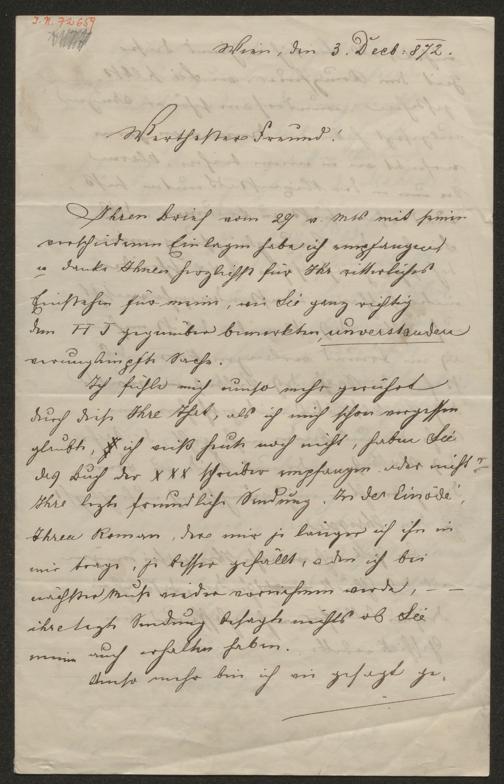 I.N. 72659
Wien, den 3. Decb: 872.
Werthester Freund!
Ihren Brief vom 29 v. Mts mit seinen
verschiedenen Einlagen habe ich empfangen
u danke Ihnen herzlichst für Ihr ritterliches
Einstehen für meine, wie Sie ganz richtig
dem H J gegenüber bemerkten, unverstanden
verunglimpfte Sache.
Ich fühle mich umso mehr gerührt
durch diese Ihre That, als ich mich schon vergessen
glaubte, ich weiß heute noch nicht, haben Sie
das Buch der XXX schreiber empfangen oder nicht?
Ihre letzte freundliche Sendung „In der Einöde“,
Ihren Roman, der mir je länger ich ihn in
mir trage, je besser gefällt, u den ich bei
nächster Muße wieder vornehmen werde, — —
ihre letzte Sendung besagte nichts ob Sie
meine auch erhalten haben.
Umso mehr bin ich wie gesagt ge-